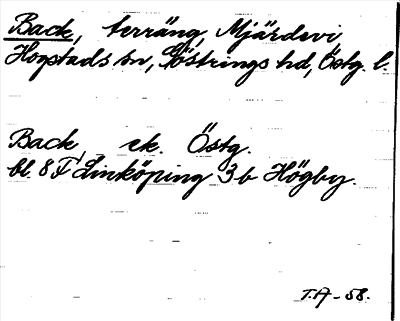 Back, terräng, Mjärdevi
Hogstads sn, Göstrings hd, Östg. l.
Back, ek. Östg.
bl. 8 F Linköping 3 b Högby.
T.A -58.